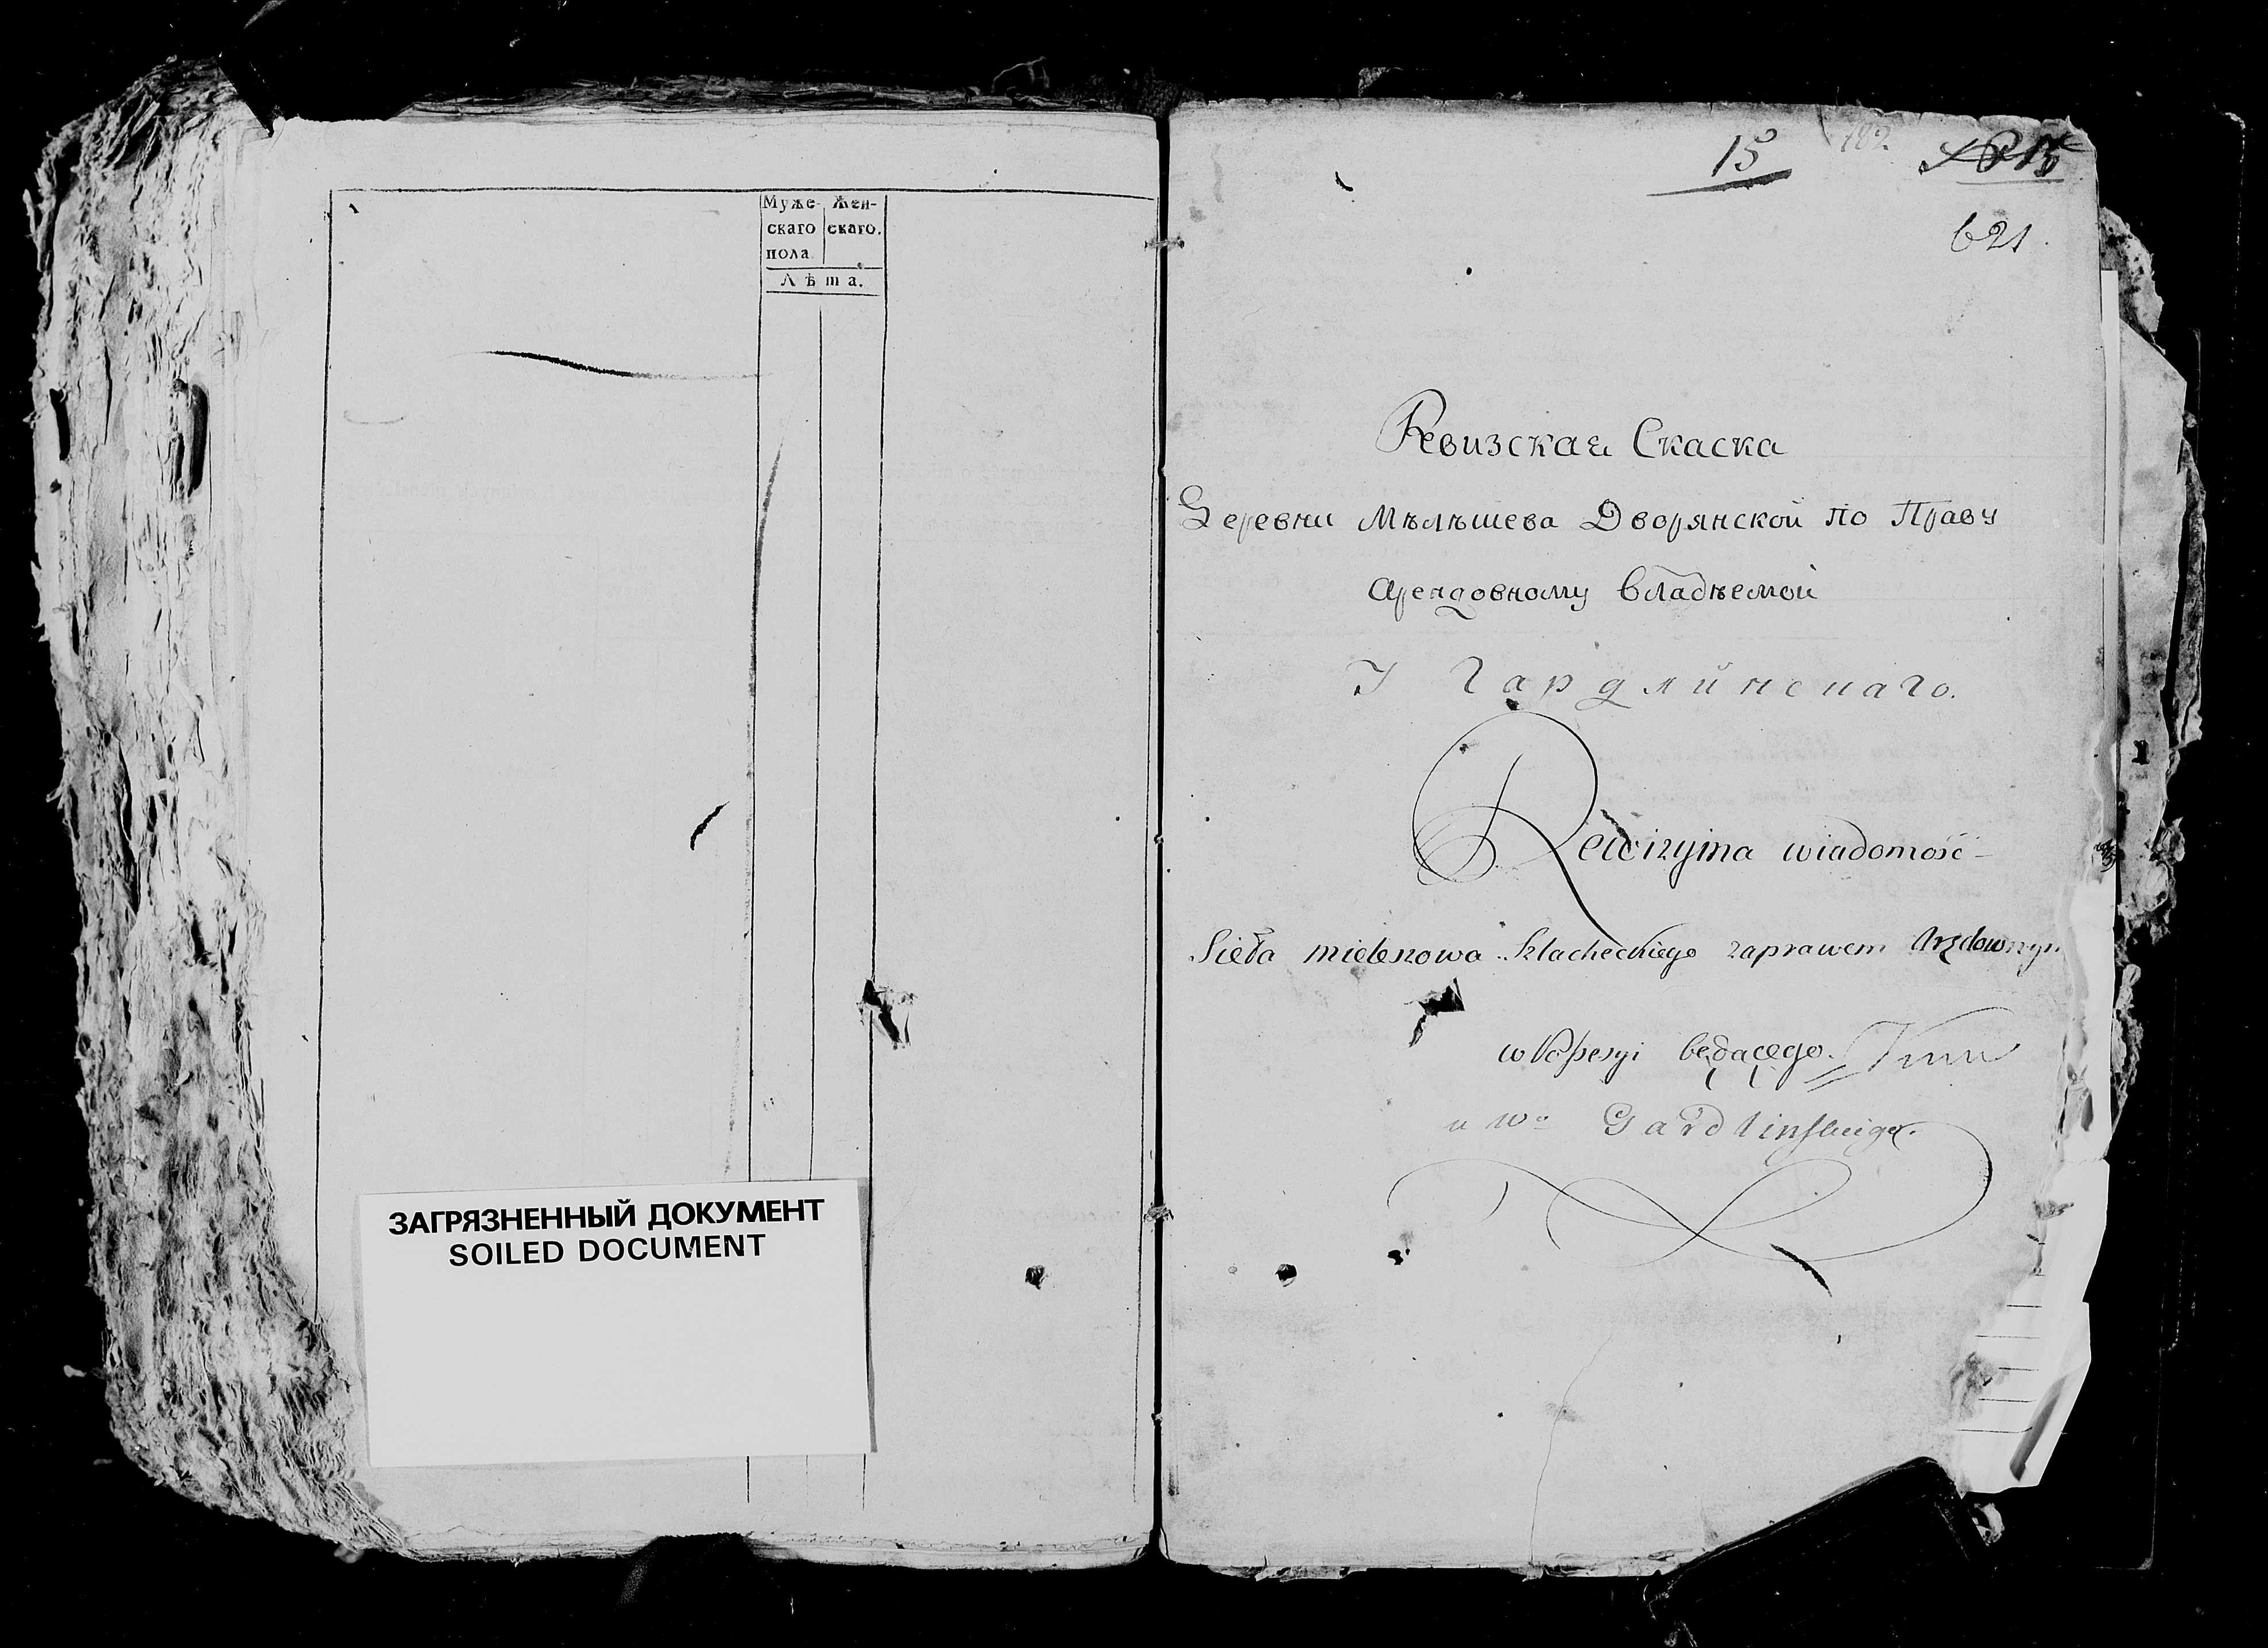 Муже- Жен-
скаго скаго.
пола
Лѣта.
ЗАГРЯЗНЕННЫЙ ДОКУМЕНТ
SOILED DOCUMENT
15 182
621.
Ревизская Скаска
Деревни Мѣлѣшева Дворянской по Праву
Арендовному владѣемой
У Гардлинскаго.
Rewizyina wiadomość
Sieła mieleszowa Szlacheckiego zaprawem
w Possesyi będącego.
u Wo Gardlinskiego.